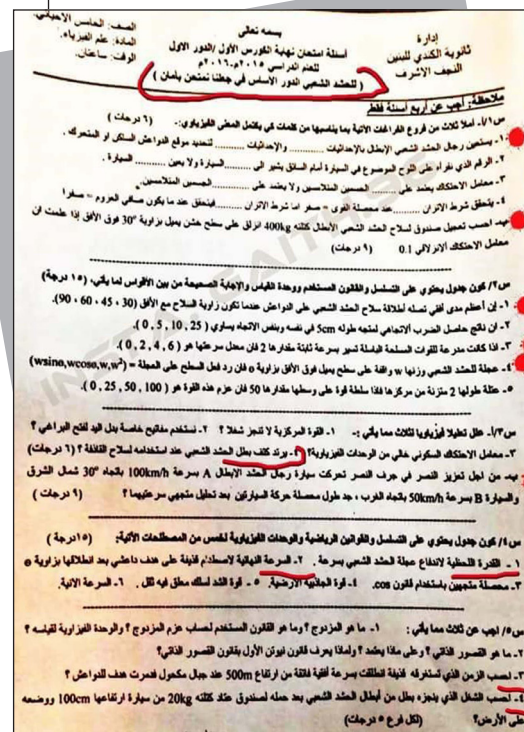 بسمه تعالى
إدارة
ثانوية الكندي للبنين
النجف الاشرف
أسئلة امتحان نهاية الكورس الأول /الدور الاول
للعام الدراسي ٢٠١٥م-٢٠١٦م
( للحشد الشعبي الدور الاساس في جعلنا نمتحن بأمان )
الصف: الخامس الاحيائي.
المادة: علم الفيزياء.
الوقت: ساعتان.
ملاحظة: أجب عن أربع أسئلة فقط
س١/أ- املأ ثلاث من فروع الفراغات الآتية بما يناسبها من كلمات كي يكتمل المعنى الفيزياوي:- (٦ درجات)
١- يستعين رجال الحشد الشعبي الإبطال بالإحداثيات ........ والإحداثيات ........ لتحديد موقع الدواعش الساكن او المتحرك .
٢- الرقم الذي نقرأه على اللوح الموضوع في السيارة أمام السائق يشير الى ........ السيارة ولا يعين ........ السيارة .
٣- معامل الاحتكاك يعتمد على ........ الجسمين المتلامسين ولا يعتمد على ........ الجسمين المتلامسين.
٤- يتحقق شرط الاتزان ........ عند محصلة القوى = صفر اما شرط الاتزان ........ فيتحقق عند ما يكون صافي العزوم = صفرا
ب- احسب تعجيل صندوق لسلاح الحشد الشعبي الأبطال كتلته 400kg انزلق على سطح خشن يميل بزاوية 30° فوق الأفق إذا علمت ان
معامل الاحتكاك الانزلاقي 0.1 (٩ درجات)
س٢/ كون جدول يحتوي على التسلسل والقانون المستخدم ووحدة القياس والإجابة الصحيحة من بين الأقواس لما يأتي، (١٥ درجة)
١- ان أعظم مدى أفقي تصله اطلاقة سلاح الحشد الشعبي على الدواعش عندما تكون زاوية السلاح مع الأفق (30 ، 45 ، 60 ، 90).
٢- ان ناتج حاصل الضرب الاتجاهي لمتجه طوله 5cm في نفسه وبنفس الاتجاه يساوي ( 25 , 10 , 5 , 0 ).
٣- اذا كانت مدرعة للقوات المسلحة الباسلة تسير بسرعة ثابتة مقدارها 2 فان معدل سرعتها هو ( 6 , 4 , 2 , 0 ).
٤- عجلة للحشد الشعبي وزنها w واقفة على سطح يميل فوق الأفق بزاوية ө فان رد فعل السطح على العجلة = (wsinө,wcosө,w,w²)
٥- عتلة طولها 2 متزنة من مركزها فاذا سلطة قوة على وسطها مقدارها 50 فان عزم هذه القوة هو ( 100 , 50 , 25 , 0 ).
س٣/أ- علل تعليلا فيزياويا لثلاث مما يأتي :- ١- القوة المركزية لا تنجز شغلا ؟ ٢- نستخدم مفاتيح خاصة بدل اليد لفتح البراغي ؟
٣- معامل الاحتكاك السكوني خالي من الوحدات الفيزياوية؟ ٤- يرتد كتف بطل الحشد الشعبي عند استخدامه لسلاح القاذفة ؟ (٦ درجات)
ب- من اجل تعزيز النصر في جرف النصر تحركت سيارة رجال الحشد الابطال A بسرعة 100km/h باتجاه 30° شمال الشرق
والسيارة B بسرعة 50km/h باتجاه الغرب ، جد طول محصلة حركة السيارتين بعد تحليل متجهي سرعتيهما ؟ (٩ درجات )
س٤/ كون جدول يحتوي على التسلسل والقوانين الرياضية والوحدات الفيزياوية لخمس من المصطلحات الآتية: (١٥درجة )
١- القدرة اللحظية لاندفاع عجلة الحشد الشعبي بسرعة . ٢- السرعة النهائية لاصطدام قذيفة على هدف داعشي بعد انطلاقها بزاوية ө
٣- محصلة متجهين باستخدام قانون cos. ٤- قوة الجاذبية الارضية. ٥- قوة الشد لسلك معلق فيه ثقل . ٦- السرعة الآنية.
س٥/ اجب عن ثلاث مما يأتي : ١- ما هو المزدوج ؟ وما هو القانون المستخدم لحساب عزم المزدوج ؟ والوحدة الفيزياوية لقياسه ؟
٢- ما هو القصور الذاتي ؟ وعلى ماذا يعتمد ؟ ولماذا يعرف قانون نيوتن الأول بقانون القصور الذاتي؟
٣- احسب الزمن الذي تستغرقه قذيفة انطلقت بسرعة أفقية فائقة من ارتفاع 500m عند جبال مكحول فدمرت هدف للدواعش ؟
٤- احسب الشغل الذي ينجزه بطل من أبطال الحشد الشعبي بعد حمله لصندوق عتاد كتلته 20kg من سيارة ارتفاعها 100cm ووضعه
على الأرض؟ (لكل فرع ٥ درجات)
INSTA: GAITH.SS